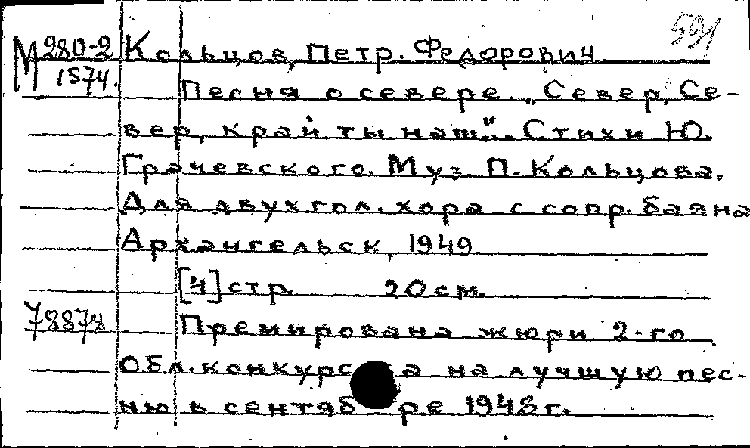 591
М 280-2 Кольцов, Петр. Федорович
1574.
Песня о севере. „Север, Се-
вер, край ты наш". Стихи Ю.
Грачевского. Муз. П. Кольцова.
Для двухгол. хора с сопр. баяна
Архангельск, 1949
[4] стр. 20 см.
78878 Премирована жюри 2-го
Обл. конкурса на лучшую пес-
ню в сентябре 1948 г.